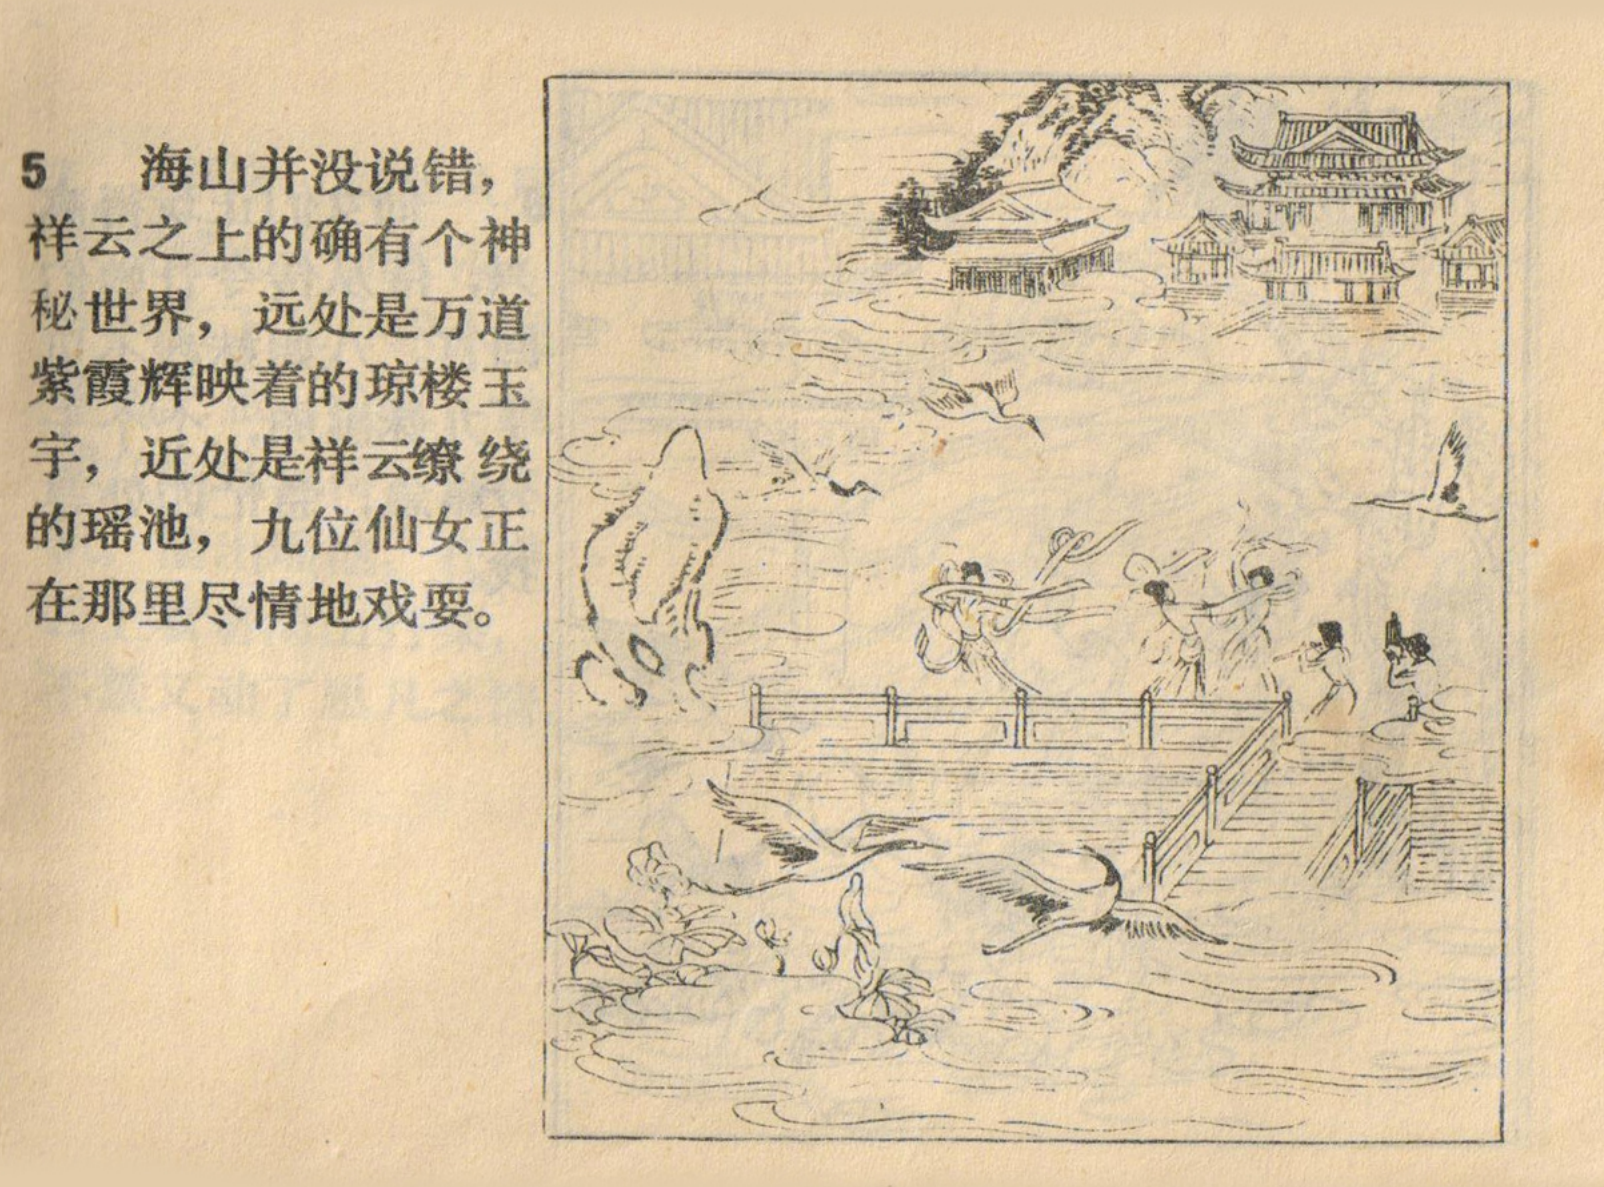 5 海山并没说错，
祥云之上的确有个神
秘世界，远处是万道
紫霞辉映着的琼楼玉
宇，近处是祥云缭绕
的瑶池，九位仙女正
在那里尽情地戏耍。